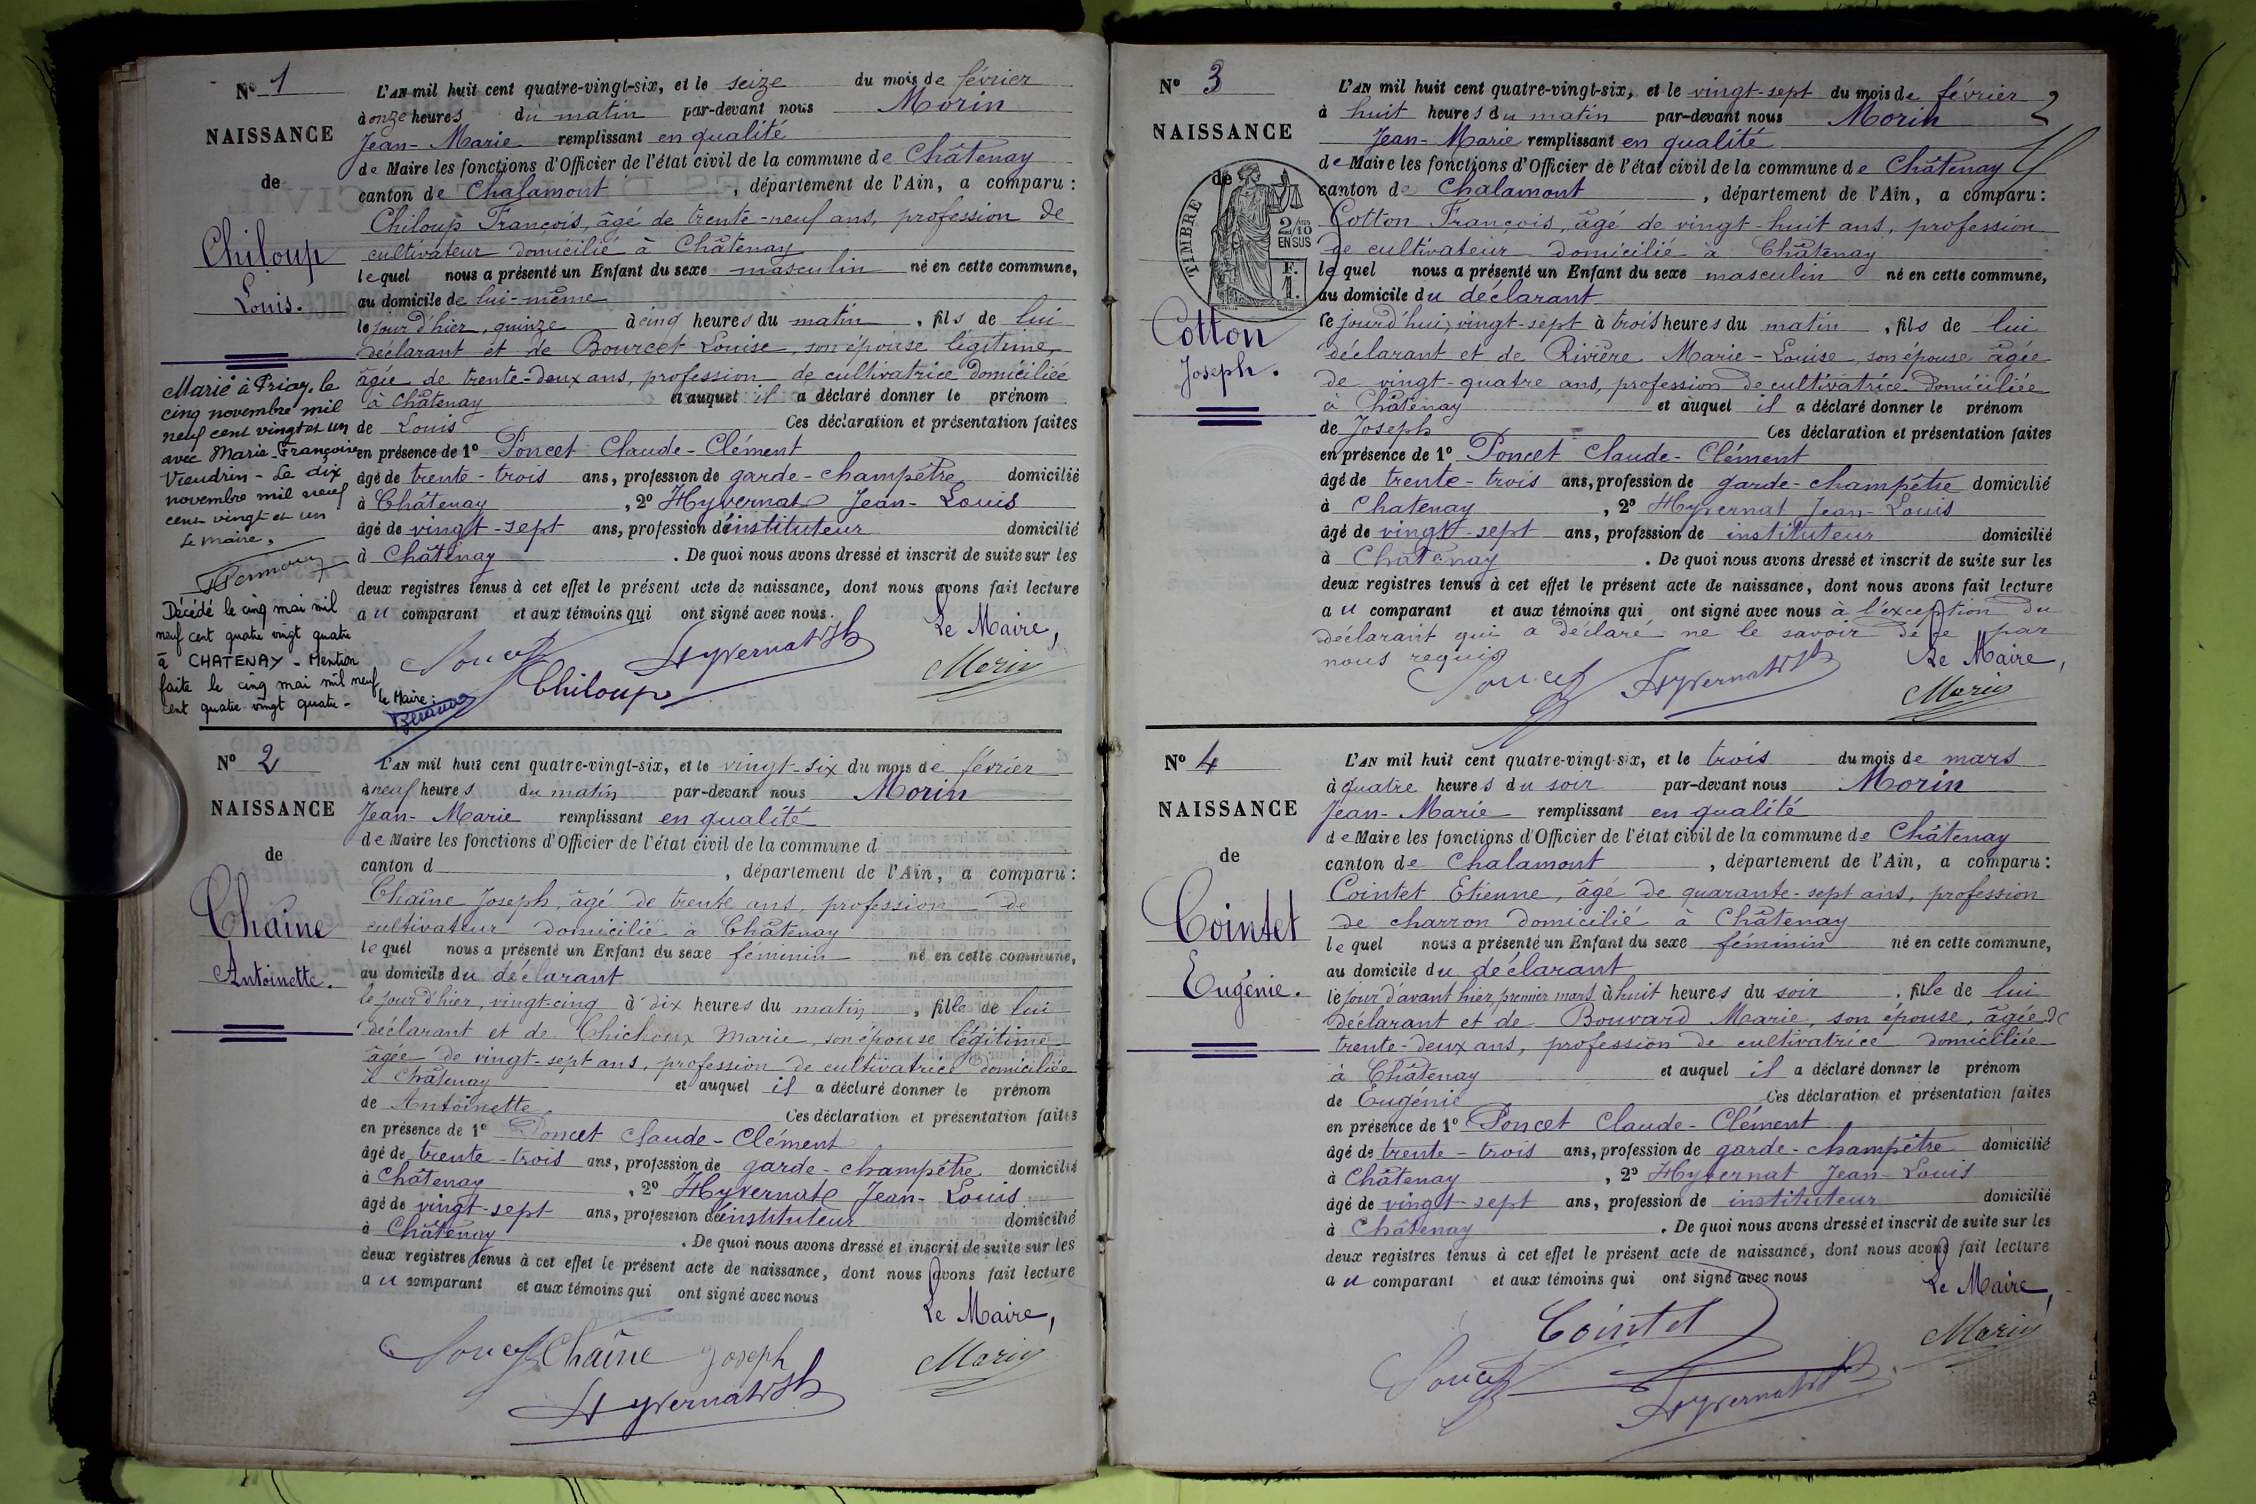 N° 1
NAISSANCE
de
Chiloup
Louis.
Marié à Priay, le
cinq novembre mil
neuf cent vingt et un
avec Marie-Françoise
Vieudrin - Le dix
novembre mil neuf
cent vingt et un
Le maire,
Décédé le cinq mai mil
neuf cent quatre vingt quatre
à CHATENAY - Mention
faite le cinq mai mil neuf
cent quatre vingt quatre -
le Maire :
L'AN mil huit cent quatre-vingt-six, et le seize du mois de février
à onze heures du matin par-devant nous Morin
Jean-Marie remplissant en qualité
de Maire les fonctions d'Officier de l'état civil de la commune de Châtenay
canton de Chalamont, département de l'Ain, a comparu :
Chiloup François, âgé de trente-neuf ans, profession de
cultivateur domicilié à Châtenay
lequel nous a présenté un Enfant du sexe masculin né en cette commune,
au domicile de lui-même
le jour d'hier, quinze à cinq heures du matin, fils de lui
déclarant et de Bourcet Louise, son épouse légitime,
âgée de trente-deux ans, profession de cultivatrice domiciliée
à Châtenay et auquel il a déclaré donner le prénom
de Louis Ces déclaration et présentation faites
en présence de 1° Poncet Claude-Clément
âgé de trente-trois ans, profession de garde-champêtre domicilié
à Châtenay, 2° Hyvernat Jean-Louis
âgé de vingt-sept ans, profession d'instituteur domicilié
à Châtenay. De quoi nous avons dressé et inscrit de suite sur les
deux registres tenus à cet effet le présent acte de naissance, dont nous avons fait lecture
au comparant et aux témoins qui ont signé avec nous.
Le Maire,
Poncet Chiloup Hyvernat Morin
N° 2
NAISSANCE
de
Chaîne
Antoinette.
L'AN mil huit cent quatre-vingt-six, et le vingt-six du mois de février
à neuf heures du matin par-devant nous Morin
Jean-Marie remplissant en qualité
de Maire les fonctions d'Officier de l'état civil de la commune d
canton d , département de l'Ain, a comparu :
Chaîne Joseph, âgé de trente ans, profession de
cultivateur domicilié à Châtenay
lequel nous a présenté un Enfant du sexe féminin né en cette commune,
au domicile du déclarant
le jour d'hier, vingt-cinq à dix heures du matin, fille de lui
déclarant et de Chichoux Marie, son épouse légitime
âgée de vingt-sept ans, profession de cultivatrice domiciliée
à Châtenay et auquel il a déclaré donner le prénom
de Antoinette. Ces déclaration et présentation faites
en présence de 1° Poncet Claude-Clément
âgé de trente-trois ans, profession de garde-champêtre domicilié
à Châtenay, 2° Hyvernat Jean-Louis
âgé de vingt-sept ans, profession d'instituteur domicilié
à Châtenay. De quoi nous avons dressé et inscrit de suite sur les
deux registres tenus à cet effet le présent acte de naissance, dont nous avons fait lecture
au comparant et aux témoins qui ont signé avec nous
Le Maire,
Poncet Chaîne Joseph Morin
Hyvernat
N° 3
NAISSANCE
de
TIMBRE
2/10
EN SUS
F.
1.
Cotton
Joseph.
L'AN mil huit cent quatre-vingt-six, et le vingt-sept du mois de février
à huit heures du matin par-devant nous Morin
Jean-Marie remplissant en qualité
de Maire les fonctions d'Officier de l'état civil de la commune de Châtenay
canton de Chalamont, département de l'Ain, a comparu :
Cotton François, âgé de vingt-huit ans, profession
de cultivateur domicilié à Châtenay
lequel nous a présenté un Enfant du sexe masculin né en cette commune,
au domicile du déclarant
ce jourd'hui, vingt-sept à trois heures du matin, fils de lui
déclarant et de Rivière Marie-Louise, son épouse âgée
de vingt-quatre ans, profession de cultivatrice domiciliée
à Châtenay et auquel il a déclaré donner le prénom
de Joseph Ces déclaration et présentation faites
en présence de 1° Poncet Claude-Clément
âgé de trente-trois ans, profession de garde-champêtre domicilié
à Chatenay, 2° Hyvernat Jean-Louis
âgé de vingt-sept ans, profession de instituteur domicilié
à Châtenay. De quoi nous avons dressé et inscrit de suite sur les
deux registres tenus à cet effet le présent acte de naissance, dont nous avons fait lecture
au comparant et aux témoins qui ont signé avec nous à l'exception du
déclarant qui a déclaré ne le savoir de ce par
nous requis
Le Maire,
Poncet Hyvernat Morin
N° 4
NAISSANCE
de
Cointet
Eugénie.
L'AN mil huit cent quatre-vingt-six, et le trois du mois de mars
à quatre heures du soir par-devant nous Morin
Jean-Marie remplissant en qualité
de Maire les fonctions d'Officier de l'état civil de la commune de Châtenay
canton de Chalamont, département de l'Ain, a comparu :
Cointet Etienne, âgé de quarante-sept ans, profession
de charron domicilié à Châtenay
lequel nous a présenté un Enfant du sexe féminin né en cette commune,
au domicile du déclarant
le jour d'avant hier, premier mars à huit heures du soir, fille de lui
déclarant et de Bouvard Marie, son épouse, âgée de
trente-deux ans, profession de cultivatrice domiciliée
à Châtenay et auquel il a déclaré donner le prénom
de Eugénie Ces déclaration et présentation faites
en présence de 1° Poncet Claude-Clément
âgé de trente-trois ans, profession de garde-champêtre domicilié
à Châtenay, 2° Hyvernat Jean-Louis
âgé de vingt-sept ans, profession de instituteur domicilié
à Châtenay. De quoi nous avons dressé et inscrit de suite sur les
deux registres tenus à cet effet le présent acte de naissance, dont nous avons fait lecture
au comparant et aux témoins qui ont signé avec nous
Le Maire,
Cointet Morin
Poncet Hyvernat